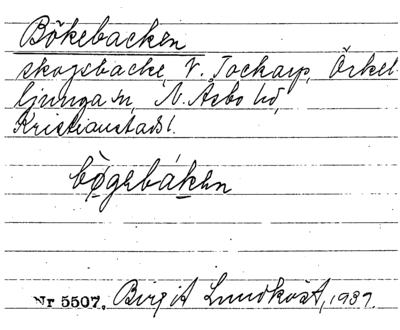 Bökebacken
skogsbacke, V. Tockarp, Örkel-
ljunga sn, N. Åsbo hd,
Kristianstads l.
bø̀gebáken
Nr 5507. Birgit Lundkvist, 1937.